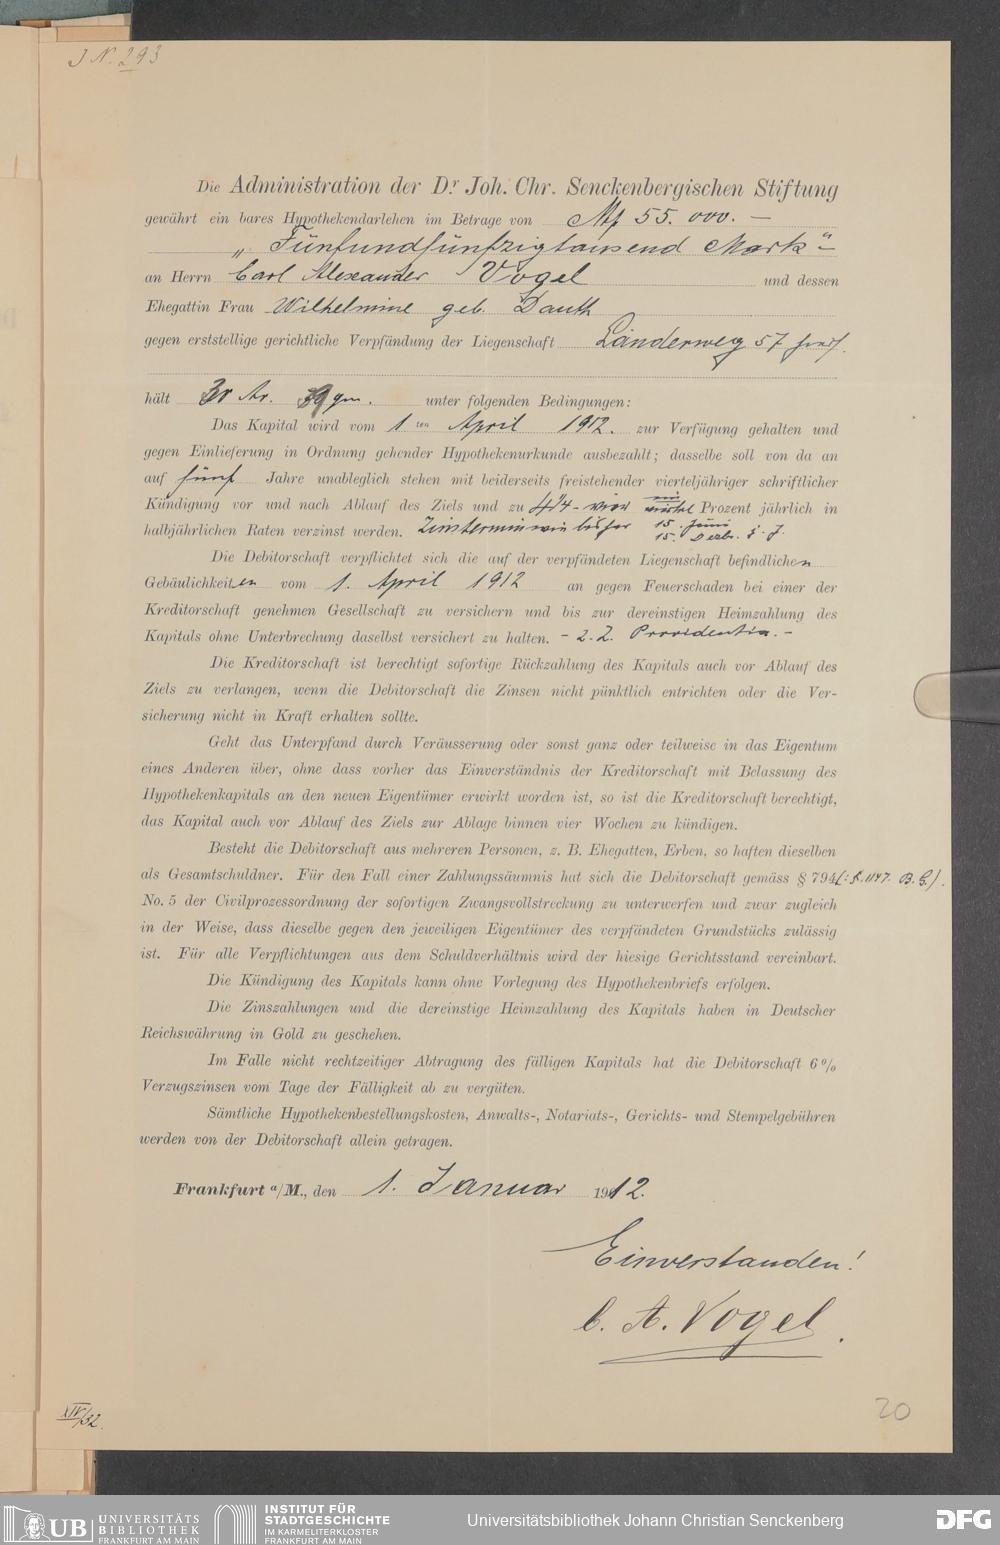 J N. 293
Die Administration der Dr. Joh. Chr. Senckenbergischen Stiftung
gewährt ein bares Hypothekendarlehen im Betrage von Mk 55.000. —
„Fünfundfünfzigtausend Mark“ —
an Herrn Carl Alexander Vogel und dessen
Ehegattin Frau Wilhelmine geb. Dauth
gegen erststellige gerichtliche Verpfändung der Liegenschaft Länderweg 57
hält Ar. 39 qm. unter folgenden Bedingungen:
Das Kapital wird vom 1ten April 1912. zur Verfügung gehalten und
gegen Einlieferung in Ordnung gehender Hypothekenurkunde ausbezahlt; dasselbe soll von da an
auf fünf Jahre unableglich stehen mit beiderseits freistehender vierteljähriger schriftlicher
Kündigung vor und nach Ablauf des Ziels und zu 4 1/4 - vier ein viertel Prozent jährlich in
halbjährlichen Raten verzinst werden. Zinstermin wie bisher 15. Juni 15. Dezbr. j. J.
Die Debitorschaft verpflichtet sich die auf der verpfändeten Liegenschaft befindlichen
Gebäulichkeiten vom 1. April 1912 an gegen Feuerschaden bei einer der
Kreditorschaft genehmen Gesellschaft zu versichern und bis zur dereinstigen Heimzahlung des
Kapitals ohne Unterbrechung daselbst versichert zu halten. - z. Z. Providentia. -
Die Kreditorschaft ist berechtigt sofortige Rückzahlung des Kapitals auch vor Ablauf des
Ziels zu verlangen, wenn die Debitorschaft die Zinsen nicht pünktlich entrichten oder die Ver-
sicherung nicht in Kraft erhalten sollte.
Geht das Unterpfand durch Veräusserung oder sonst ganz oder teilweise in das Eigentum
eines Anderen über, ohne dass vorher das Einverständnis der Kreditorschaft mit Belassung des
Hypothekenkapitals an den neuen Eigentümer erwirkt worden ist, so ist die Kreditorschaft berechtigt,
das Kapital auch vor Ablauf des Ziels zur Ablage binnen vier Wochen zu kündigen.
Besteht die Debitorschaft aus mehreren Personen, z. B. Ehegatten, Erben, so haften dieselben
als Gesamtschuldner. Für den Fall einer Zahlungssäumnis hat sich die Debitorschaft gemäss § 794 (: §. 1147. B. G.)
No. 5 der Civilprozessordnung der sofortigen Zwangsvollstreckung zu unterwerfen und zwar zugleich
in der Weise, dass dieselbe gegen den jeweiligen Eigentümer des verpfändeten Grundstücks zulässig
ist. Für alle Verpflichtungen aus dem Schuldverhältnis wird der hiesige Gerichtsstand vereinbart.
Die Kündigung des Kapitals kann ohne Vorlegung des Hypothekenbriefs erfolgen.
Die Zinszahlungen und die dereinstige Heimzahlung des Kapitals haben in Deutscher
Reichswährung in Gold zu geschehen.
Im Falle nicht rechtzeitiger Abtragung des fälligen Kapitals hat die Debitorschaft 6 %
Verzugszinsen vom Tage der Fälligkeit ab zu vergüten.
Sämtliche Hypothekenbestellungskosten, Anwalts-, Notariats-, Gerichts- und Stempelgebühren
werden von der Debitorschaft allein getragen.
Frankfurt a/M., den 1. Januar 1912.
Einverstanden!
C. A. Vogel.
XIV/32.
20
UB UNIVERSITÄTS
BIBLIOTHEK
FRANKFURT AM MAIN
INSTITUT FÜR
STADTGESCHICHTE
IM KARMELITERKLOSTER
FRANKFURT AM MAIN
Universitätsbibliothek Johann Christian Senckenberg
DFG